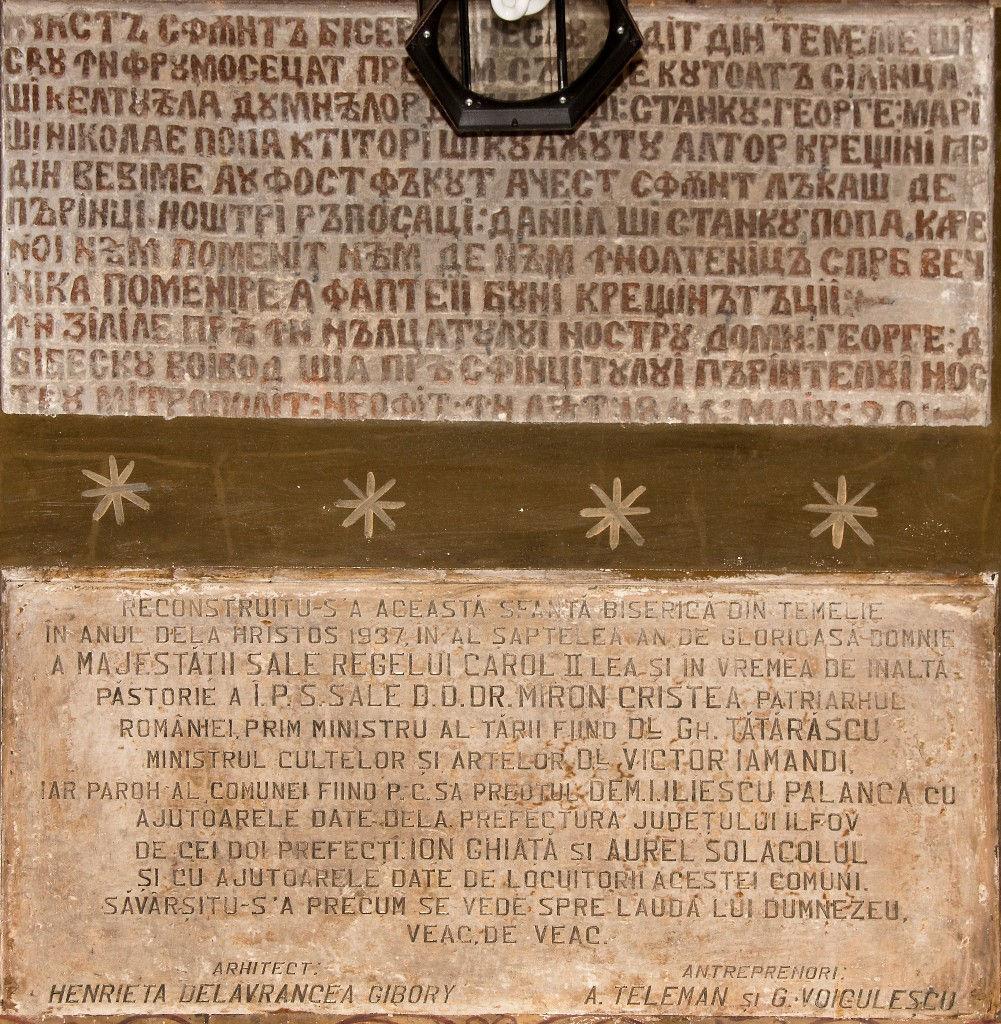 СФѪНТЪ БІСЕ ДІТ ДІН ТЕМЕЛІЕ ШІ
ꙞНФРꙋМОСЕЦАТ КꙋТОАТЪ СІЛІНЦА
ШІ КЕЛТꙋѢЛА ДꙋМНѢЛОР СТАНКꙋ: ГЕОРГЕ: МАРІ
ШІ НІКОЛАЕ ПОПА КТІТОРІ ШІ КꙋАЖꙋТꙋ АЛТОР КРЕЩІНІ ІАР
ДІН ВЕВІМЕ АꙋФОСТ ФЪКꙋТ АЧЕСТ СФѪНТ ЛЪКАШ ДЕ
ПЪРІНЦІ НОШТРІ РЪПОСАЦІ: ДАНІІЛ ШІ СТАНКꙋ ПОПА. КАРЕ
НОІ НѢМ ПОМЕНІТ НѢМ ДЕ НѢМ ꙞНОЛТЕНІЦЪ СПРѢ ВЕЧ
НІКА ПОМЕНІРЕ А ФАПТЕІІ БꙋНІ КРЕЩІНЪТЪЦІІ:
ꙞН ЗІЛІЛЕ ПРѢ ꙞН НЪЛЦАТꙋЛꙋІ НОСТРꙋ ДОМН: ГЕОРГЕ: Д
БІБЕСКꙋ ВОІВОД ШІА ПРѢ СФІНЦІТꙋЛꙋІ ПЪРІНТЕЛꙋІ НОС
ТРꙋ МІТРОПОЛІТ: НЕОФІТ: ꙞН ЛѢТ: МАІꙋ: 20:
RECONSTRUITU-S'A ACEASTĂ SFÂNTĂ BISERICĂ DIN TEMELIE
ÎN ANUL DELA HRISTOS 1937, IN AL SAPTELEA AN DE GLORIOASĂ DOMNIE
A MAJESTĂȚII SALE REGELUI CAROL II LEA ȘI IN VREMEA DE INALTĂ
PĂSTORIE A Î.P.S.SALE D.D.DR. MIRON CRISTEA PATRIARHUL
ROMÂNIEI, PRIM MINISTRU AL ȚĂRII FIIND DL GH. TĂTĂRĂSCU
MINISTRUL CULTELOR ȘI ARTELOR DL VICTOR IAMANDI,
IAR PAROH AL COMUNEI FIIND P.C.SA PREOTUL DEM.I.ILIESCU PALANCA CU
AJUTOARELE DATE DELA PREFECTURA JUDEȚULUI ILFOV
DE CEI DOI PREFECȚI: ION GHIAȚĂ ȘI AUREL SOLACOLUL
ȘI CU AJUTOARELE DATE DE LOCUITORII ACESTEI COMUNI.
SĂVÂRȘITU-S'A PRECUM SE VEDE SPRE LAUDA LUI DUMNEZEU,
VEAC, DE VEAC.
ARHITECT: ANTREPRENORI:
HENRIETA DELAVRANCEA GIBORY A. TELEMAN ȘI G. VOICULESCU